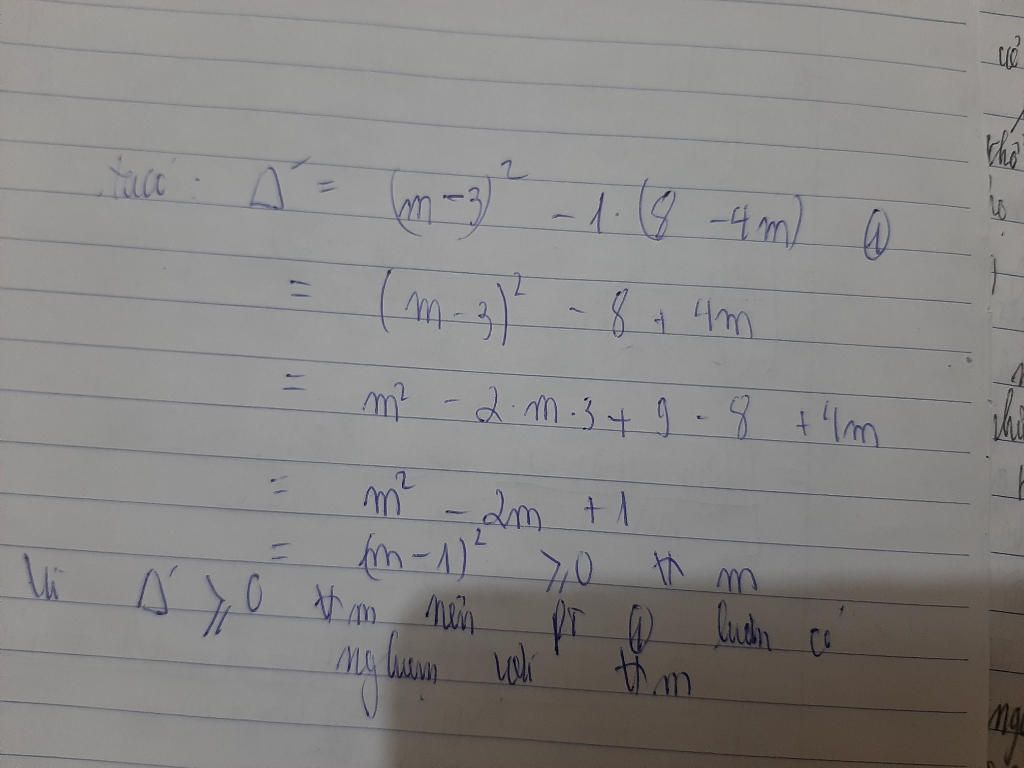 ta có : Δ' = (m-3)² - 1·(8 - 4m) ①
= (m-3)² - 8 + 4m
= m² - 2·m·3 + 9 - 8 + 4m
= m² - 2m + 1
= (m-1)² ⩾0 ∀ m
Vì Δ' ⩾ 0 ∀m nên pt ① luôn có
nghiệm với ∀m